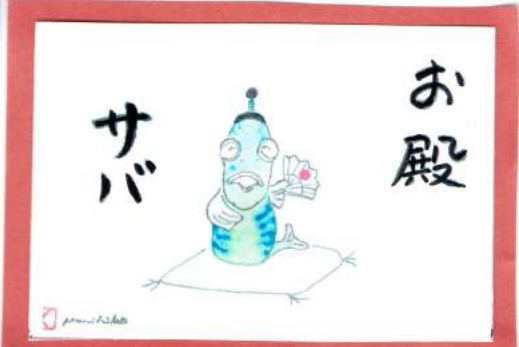 お殿
サバ